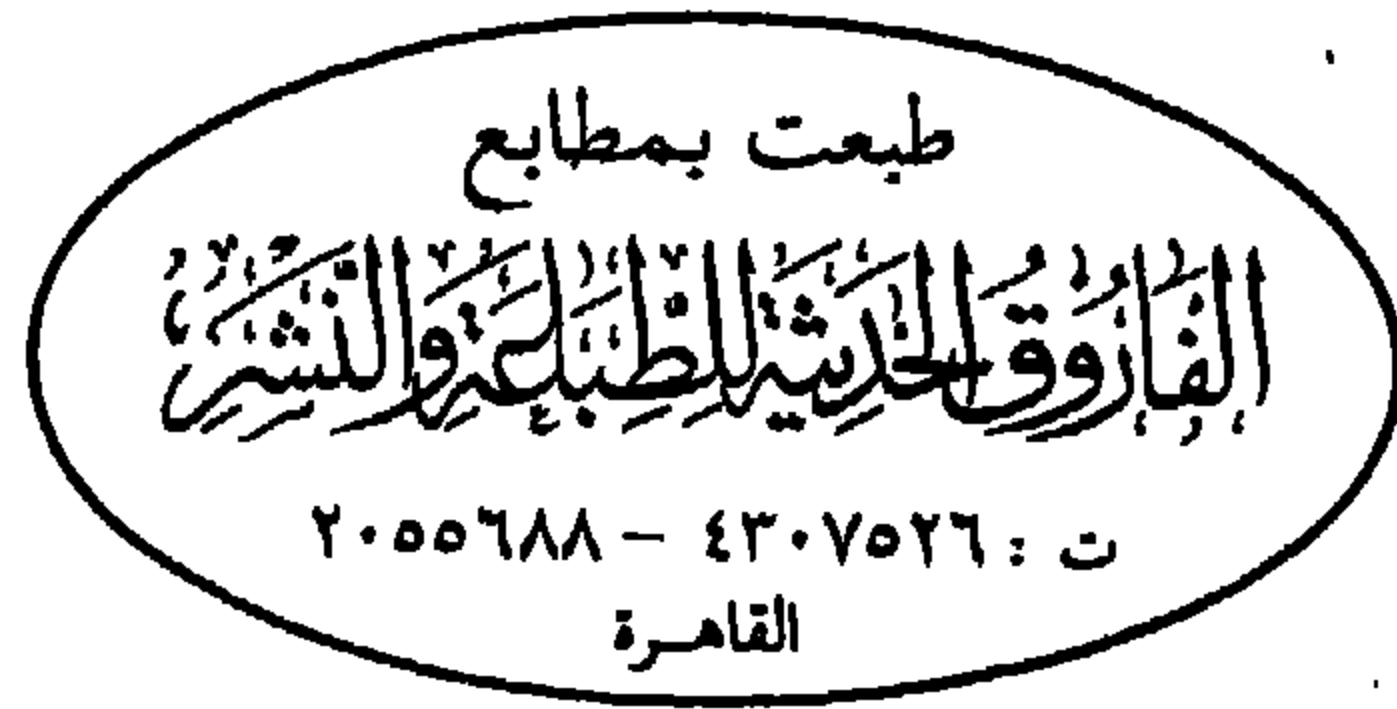 طبعت بمطابع
الفَارُوقُ الحَدِيثَةُ لِلطِّبَاعَةِ وَالنَّشِر
ت : ٤٣٠٧٥٢٦ – ٢٠٥٥٦٨٨
القاهـرة